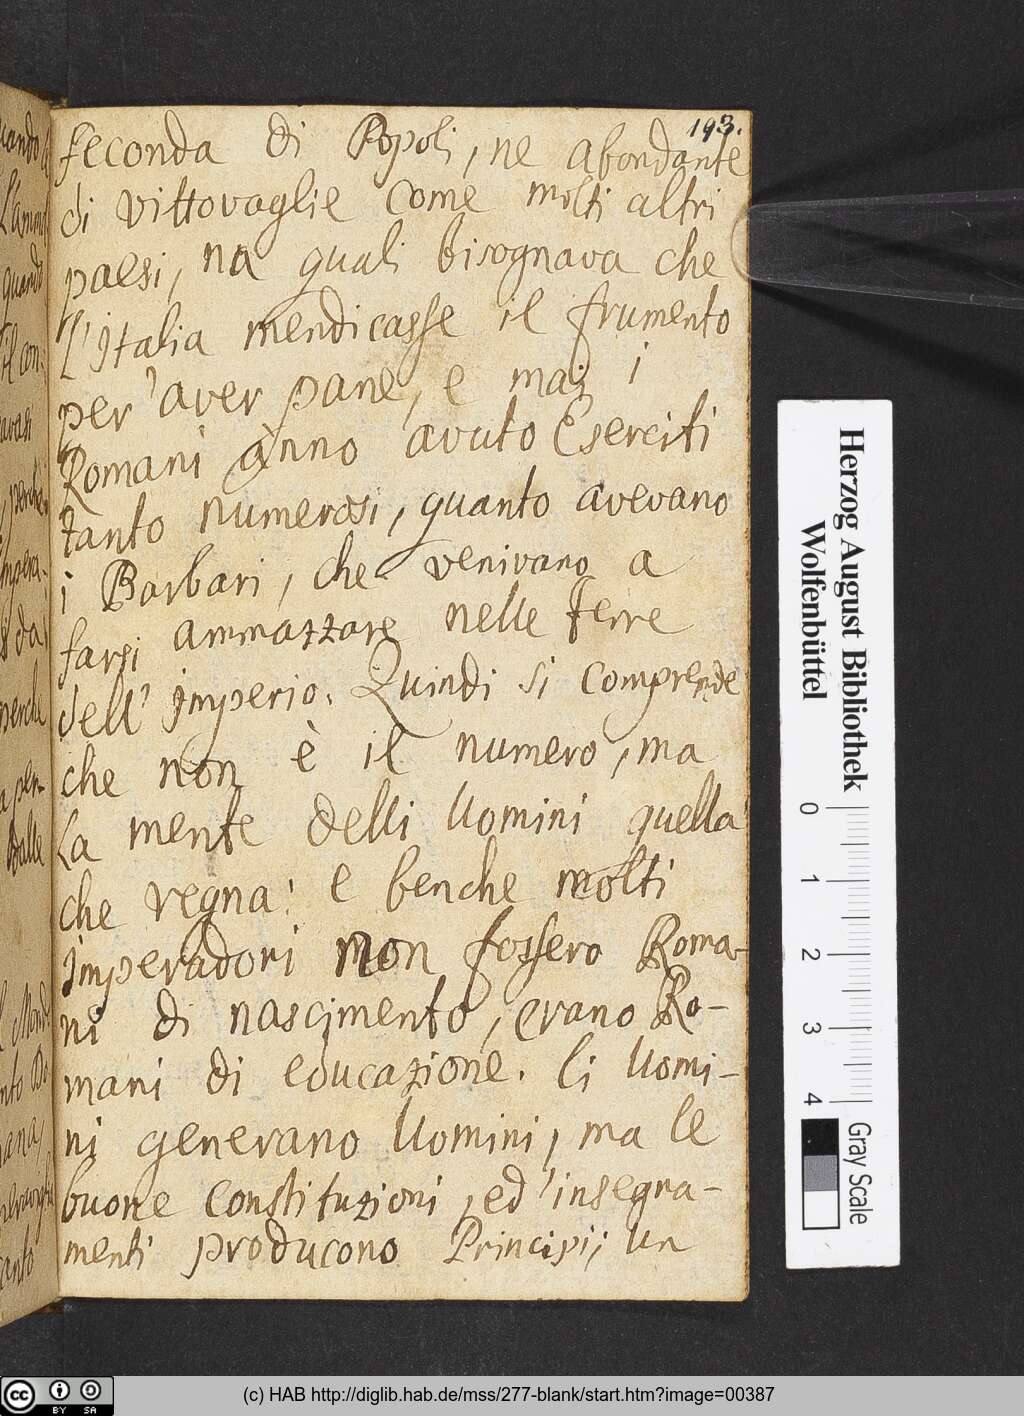 193.
feconda di Popoli, ne abondante
di vittovaglie come molti altri
paesi, na quali bisognava che
l'Italia mendicasse il frumento
per aver pane, e mai i
Romani ànno avuto Eserciti
tanto numerosi, quanto avevano
i Barbari, che venivano a
farsi ammazzare nelle terre
dell' imperio. Quindi si comprende
che non è il numero, ma
la mente delli Uomini quella
che regna: e benche molti
imperadori non fossero Roma-
ni di nascimento, erano Ro-
mani di educazione. li Uomi-
ni generano Uomini, ma le
buone constituzioni, ed' insegna-
menti producono Principi; un
Herzog August Bibliothek
Wolfenbüttel
0 1 2 3 4
Gray Scale
cc BY SA
(c) HAB http://diglib.hab.de/mss/277-blank/start.htm?image=00387